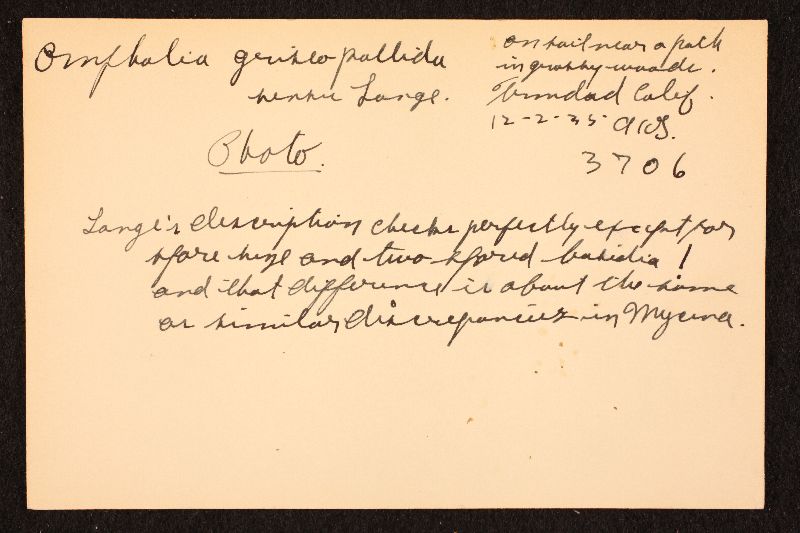 Omphalia griseo pallida
sensu Lange.
Photo.
on soil near a path
in grassy woods.
Trinidad Calif.
12-2-35 AHS.
3706
Lange's description checks perfectly except for
spore size and two-spored basidia!
and that difference is about the same
as similar discrepancies in Mycena.